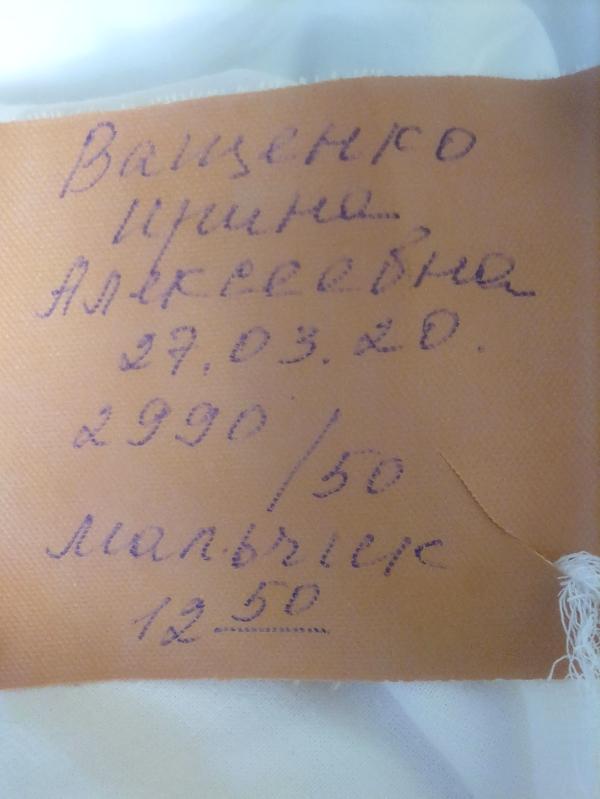 Ващенко
Ирина
Алексеевна
27.03.20.
2990/50
мальчик
12 50